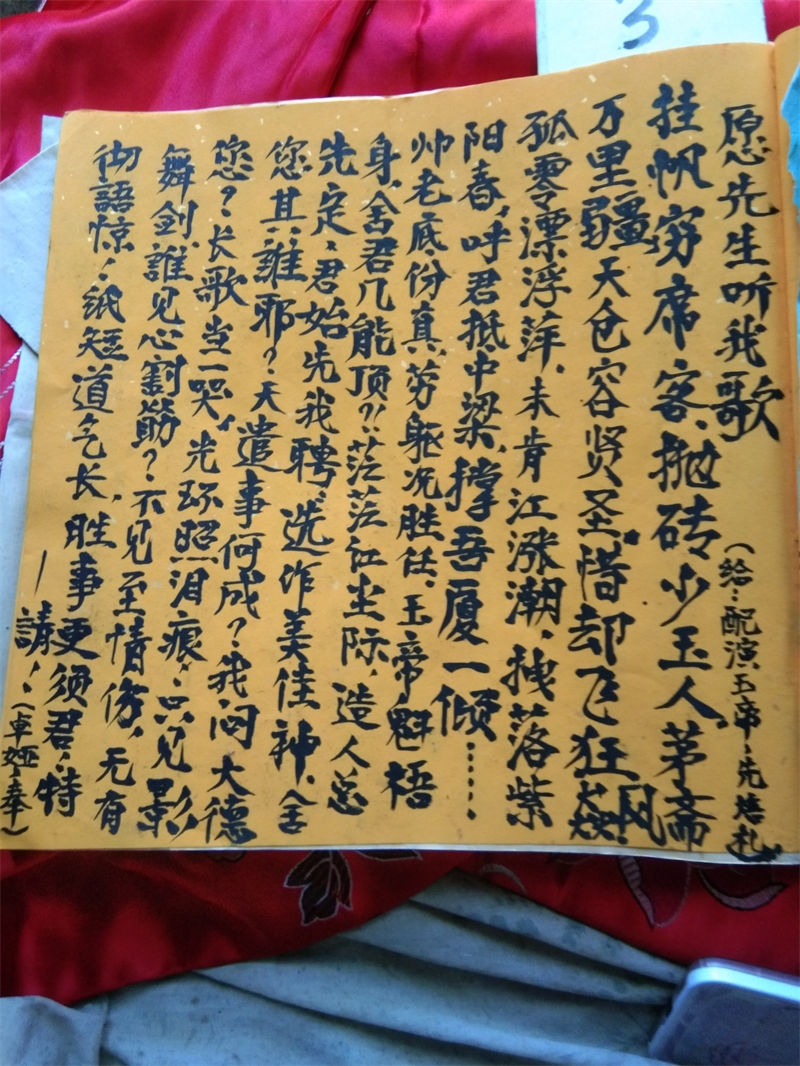 3
愿先生听我歌
(给：配演玉帝、先培礼
挂帆穷席客、抛砖少玉人、茅斋
万里疆、天仓容贤圣、惜却飞狂飙！
孤零漂浮萍、未肯江涨潮、拽落紫
阳春，呼君抵中梁，撑吾厦一倾……
帅老底份真、劳躯况胜任、玉帝魁梧
身、舍君几能顶？！茫茫红尘际，造人总
先定、君始先我聘、选作美佳神、舍
您其谁邪？天遣事何成？我闷大德
您？长歌当一哭、光环照泪痕，只见影
舞剑、谁见心割筋？不见至情伤，无有
彻語惊！纸短道气长，胜事更须君，特
—請！(卓娅奉)